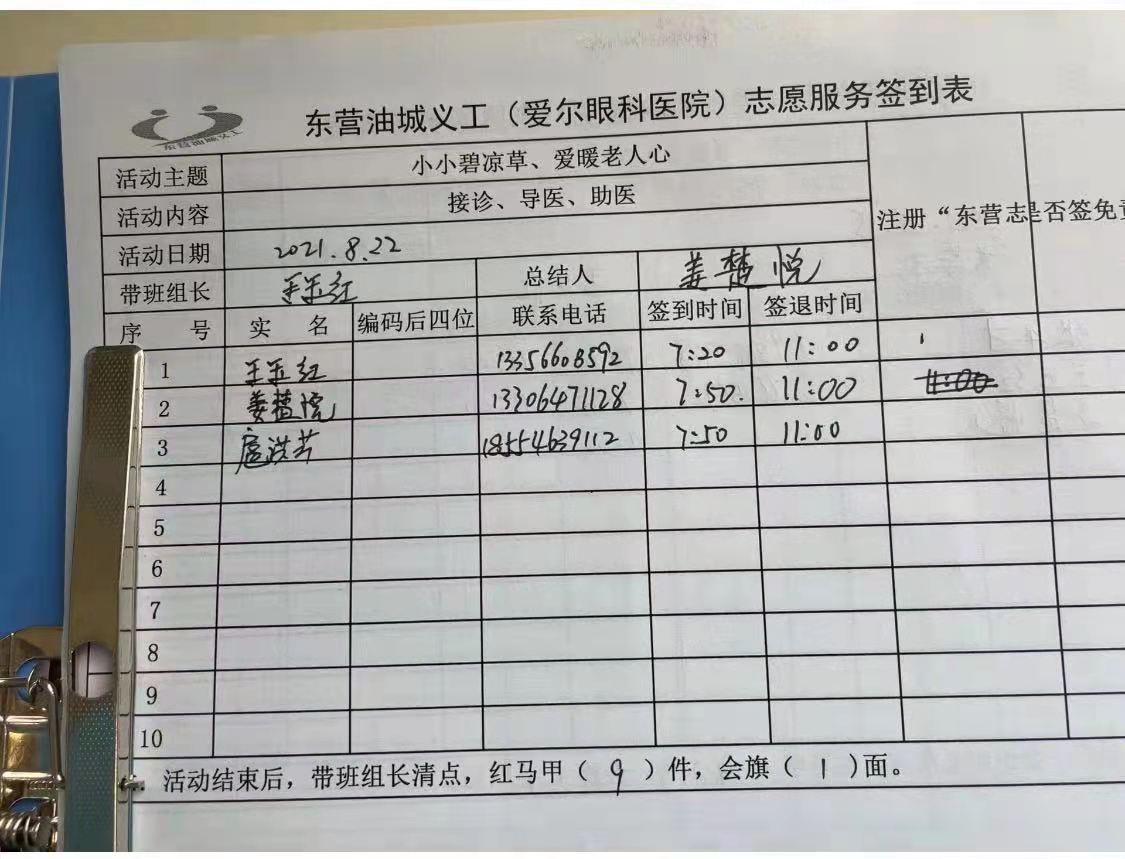 东营油城义工（爱尔眼科医院）志愿服务签到表
东营油城义工
活动主题 小小碧凉草、爱暖老人心
活动内容 接诊、导医、助医
注册“东营志 是否签免责
活动日期 2021.8.22
带班组长 王玉红 总结人 姜楚悦
序 号 实 名 编码后四位 联系电话 签到时间 签退时间
1 王玉红 13356608592 7:20 11:00
2 姜楚悦 13306471128 7:50. 11:00 11:00
3 扈洪芳 18554639112 7:50 11:00
4
5
6
7
8
9
10
活动结束后，带班组长清点，红马甲（ 9 ）件，会旗（ 1 ）面。